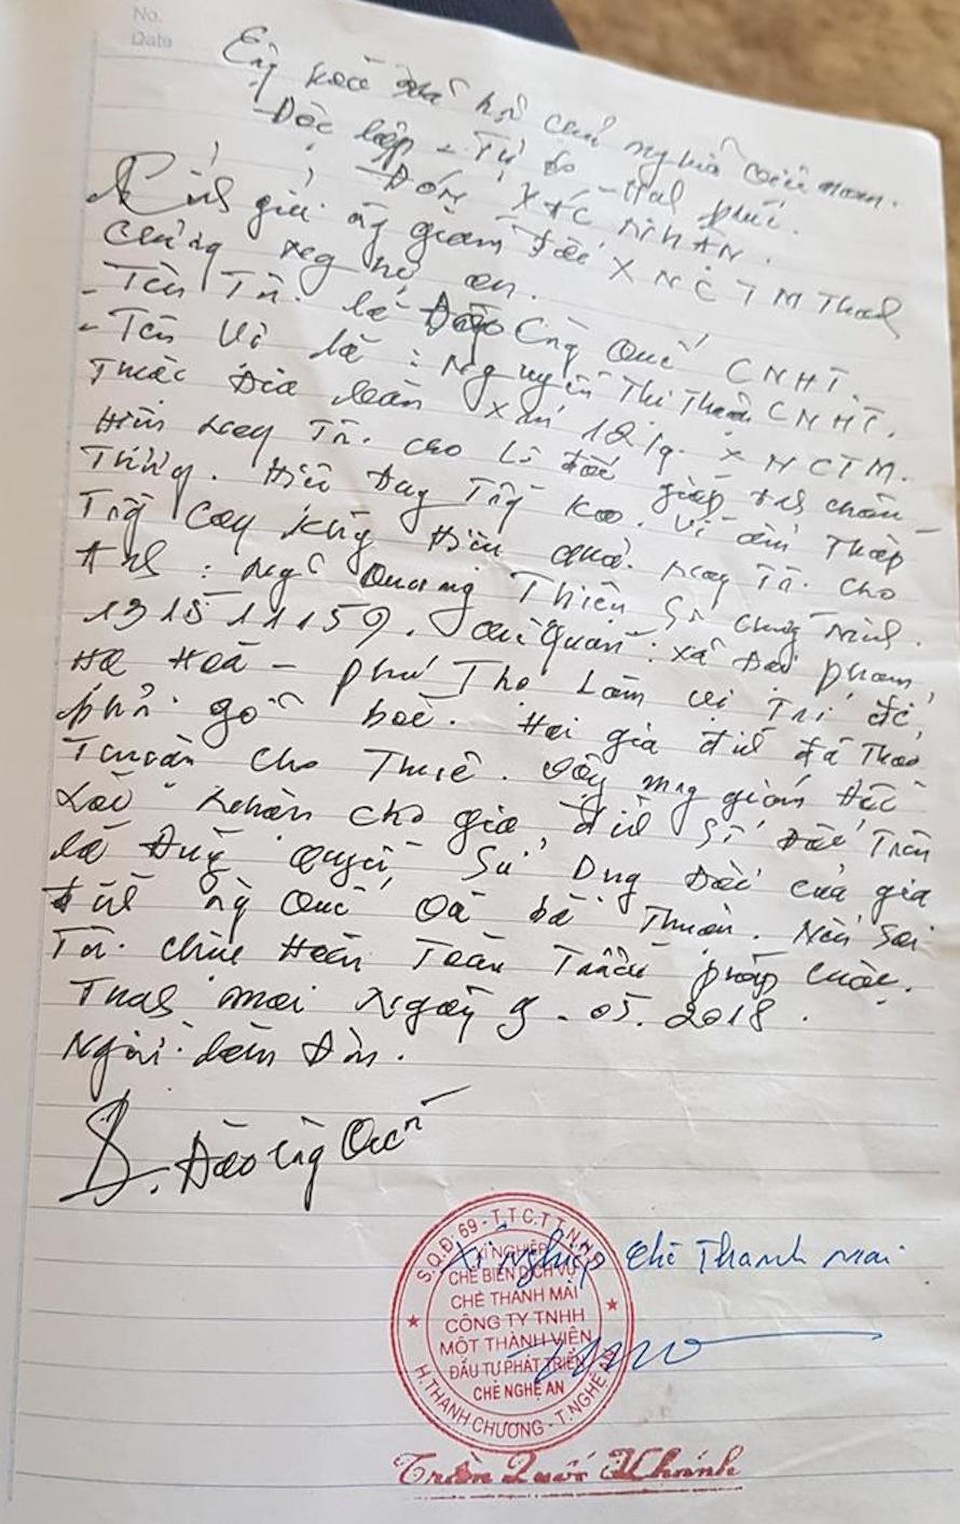 No.
Date
Cộng hoà xã hội chủ nghĩa việt nam.
Độc lập - Tự do - Hạnh phúc.
ĐƠN XÁC NHẬN.
Kính gửi ông giám đốc X N C T M Thanh
chương nghệ an.
- Tên Tôi là Đào Công Quế CNHT.
- Tên Vợ là : Nguyễn Thị Thuần CNHT.
Thuộc Địa bàn xóm X N C T M.
Hiện nay Tôi có lô đất giáp
Trường. Hiện đang Trồng keo. Vì ẩm Thấp
Trồng cây không Hiệu quả. nay Tôi cho
Anh : Ngô Quang Thiện Số chứng minh.
131511159. quê quán : xã Đại phạm,
Hạ Hoà - phú Thọ Làm vị Trí để
phơi gỗ bóc. Hai gia đình đã Thoả
Thuận cho Thuê. Vậy mong giám đốc
xác nhận cho gia đình Số Đất Trên
là Đúng quyền Sử Dụng Đất của gia
đình ông Quế và bà Thuần. Nếu Sai
Tôi chịu Hoàn Toàn Trước pháp luật.
Thanh mai Ngày 9 - 05. 2018.
Người làm Đơn.
Đào Công Quế
Xí Nghiệp Chè Thanh Mai
S.Q.Đ: 69 - T.T.C.T.T.N.H.S
XÍ NGHIỆP
CHẾ BIẾN DỊCH VỤ
CHÈ THANH MAI
CÔNG TY TNHH
MỘT THÀNH VIÊN
ĐẦU TƯ PHÁT TRIỂN
CHÈ NGHỆ AN
H. THANH CHƯƠNG - T. NGHỆ AN
Trần Quốc Khánh